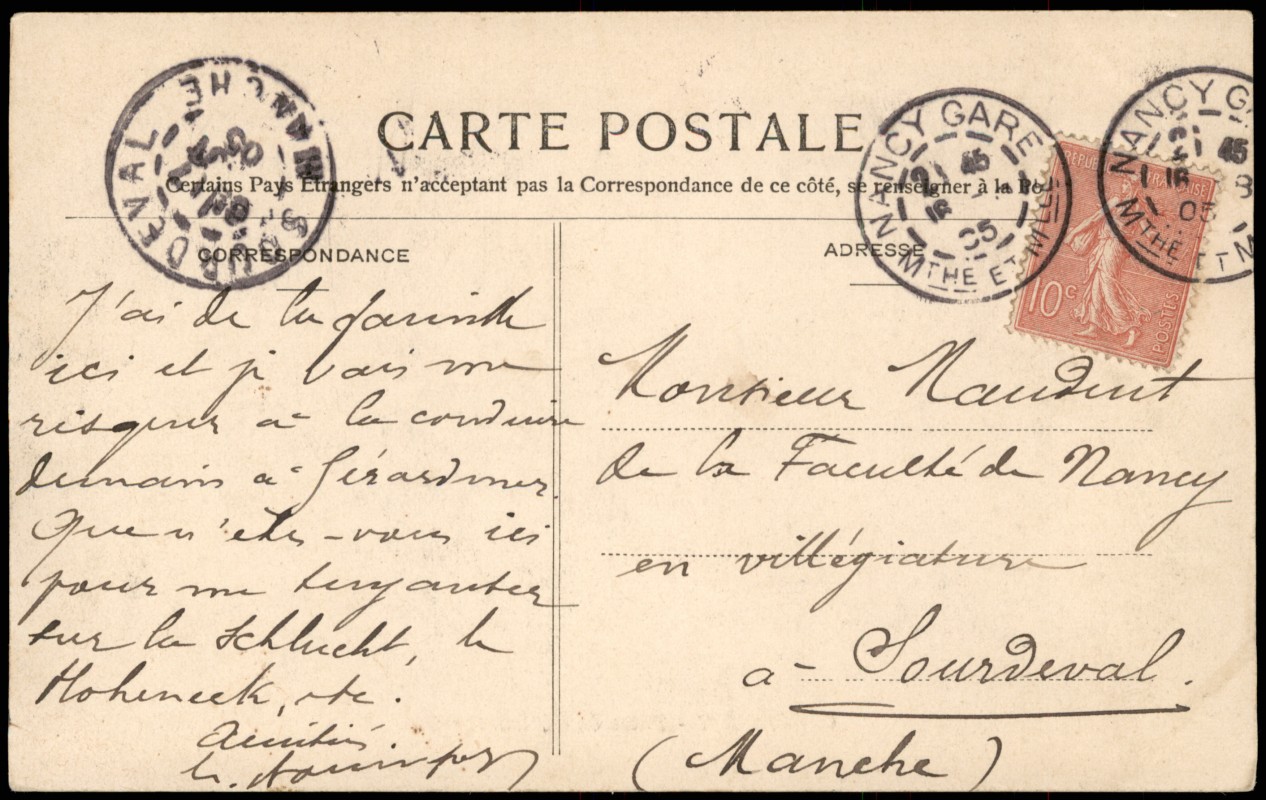 CARTE POSTALE
Certains Pays Etrangers n'acceptant pas la Correspondance de ce côté, se renseigner à la Po
CORRESPONDANCE
J'ai de la famille
ici et je vais me
risquer à la conduire
demain à Gérardmer.
Que n'êtes-vous ici
pour me
sur la Schlucht, le
Hoheneck, etc.
Amitiés
ADRESSE
Monsieur
de la Faculté de Nancy
en villégiature
à Sourdeval.
(Manche)
SOURDEVAL
MANCHE
NANCY GARE
45
16
05
MTHE ET MLLE
NANCY G
45
16 8
05
MTHE ET M
REPUBLIQUE FRANÇAISE
10c
POSTES